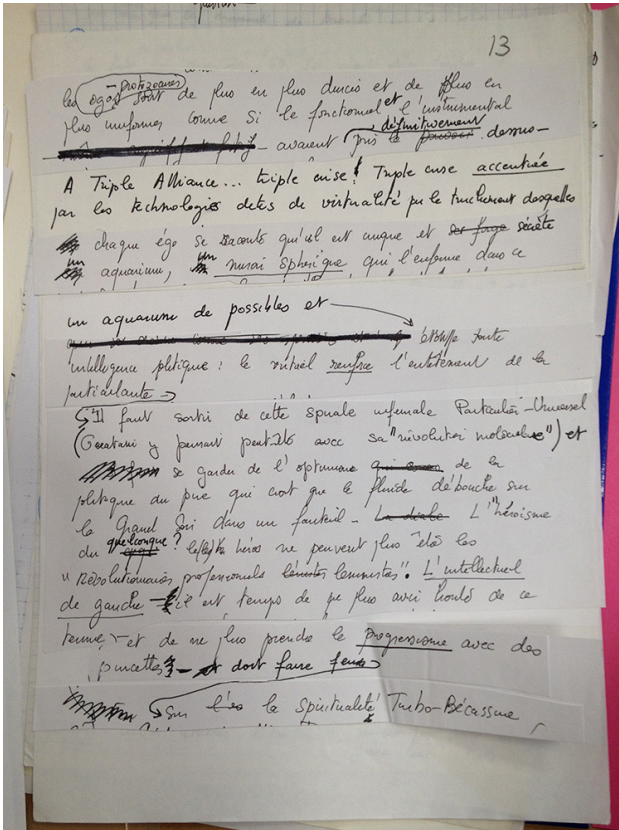 13
- Protozoaires
les egos sont de plus en plus durcis et de plus en
plus uniformes comme si le fonctionnel et l'instrumental
définitivement
avaient pris le pouvoir dessus-
A Triple Alliance... triple crise! Triple crise accentuée
par les technologies dites de virtualité par le truchement desquelles
chaque égo se raconte qu'il est unique et ser forge sécrète
un aquarium, un miroir sphérique qui l'enferme dans ce
un aquarium de possibles et
étouffe toute
intelligence politique : le virtuel renforce l'entêtement de la
particularité
"Il faut sortir de cette spirale infernale Particulier-Universel
(Guattari y pensait peut-être avec sa "révolution moléculaire") et
se garder de l'optimisme de la
politique du pire qui croit que le fluide débouche sur
le Grand Soir dans un fauteuil - L'"héroïsme
du quelconque? le(s) héros ne peuvent plus être les
"Révolutionnaires professionnels léninistes". L'intellectuel
de gauche - il est temps de ne plus avoir honte de ce
terme - et de ne plus prendre le progressisme avec des
pincettes - doit faire
sur la spiritualité Turbo-Bécassine